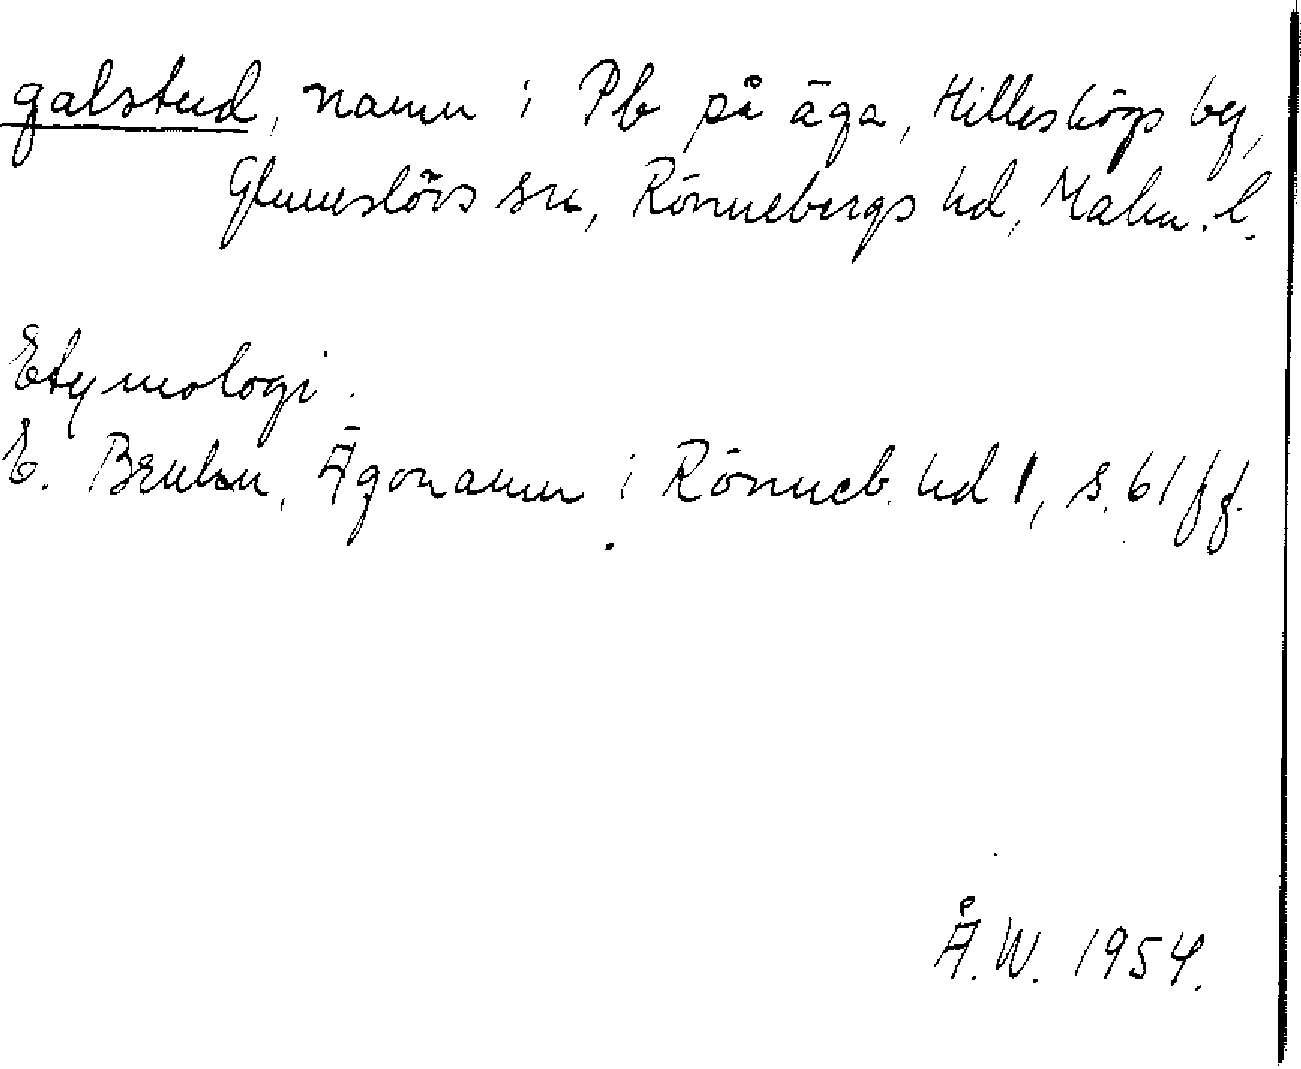 galstud, namn i Pb på äga, Hilleshögs by,
Glumslövs sn, Rönnebergs hd, Malm. l.
Etymologi.
E. Bruhn, Ägonamn i Rönneb. hd 1, s. 61 ff.
Å.W. 1954.